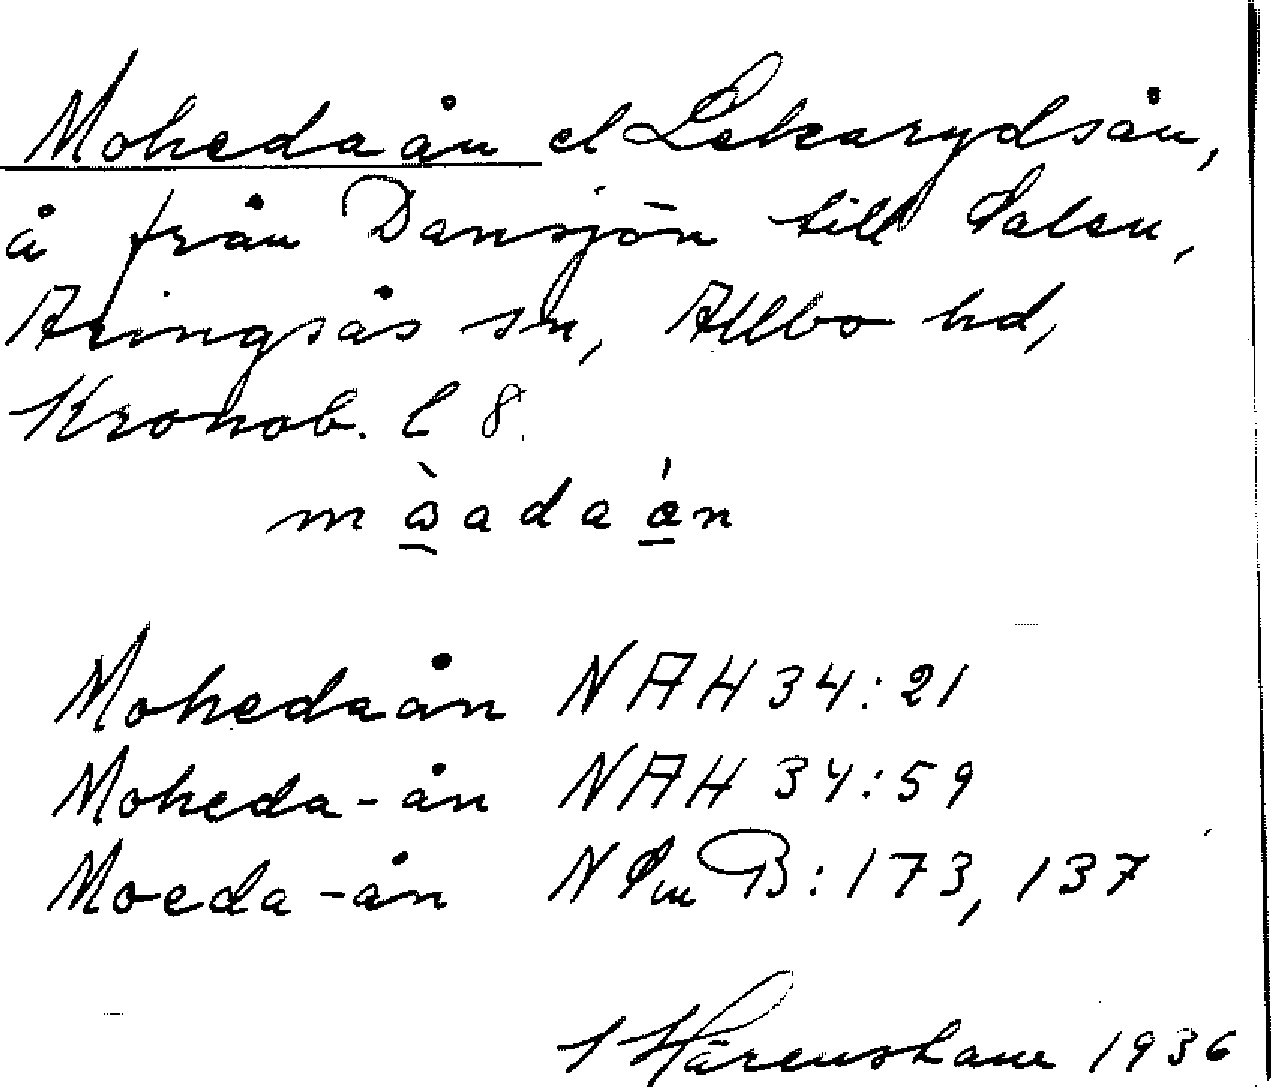 Mohedaån el Lekarydsån,
å från Dansjön till Salen,
Aringsås sn, Allbo hd,
Kronob. l 8.
Mohedaån NAH 34:21
Moheda-ån NAH 34:59
Moeda-ån N Sm B: 173, 137
1936